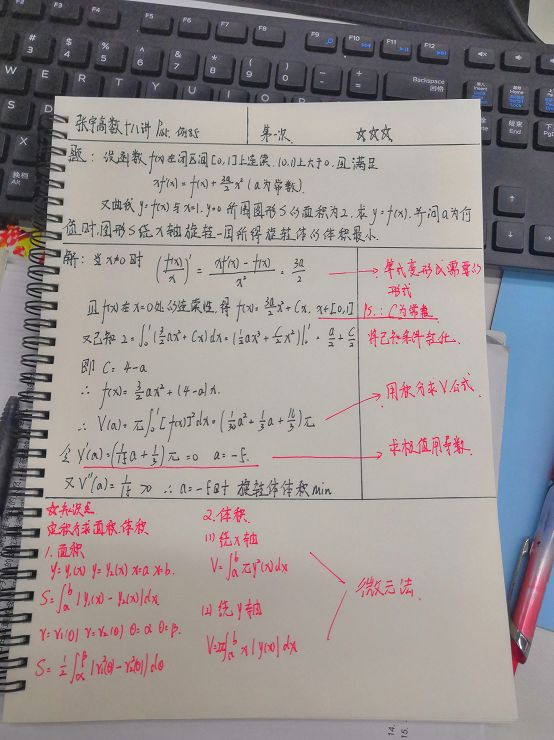 张宇高数十八讲 P185
第一次
☆☆☆
题：设函数 f(x)在闭区间[0,1]上连续,(0,1)上大于0,且满足
xf'(x) = f(x) + 3a/2 x² (a为常数)
又曲线 y=f(x) 与 x=1, y=0 所围图形S的面积为2, 求 y=f(x). 并问a为何
值时,图形S绕X轴旋转一周所得旋转体的体积最小.
解：当x≠0时 (f(x)/x)' = (xf'(x) - f(x))/x² = 3a/2
→ 等式变形成需要的形式
且f(x)在x=0处的连续性,得 f(x) = 3a/2 x² + Cx, x∈[0,1]
C为常数
又已知 2 = ∫₀¹ (3/2 ax² + Cx)dx = (1/2 ax³ + C/2 x²)|₀¹ = a/2 + C/2
将已知条件转化
即 C = 4-a
∴ f(x) = 3/2 ax² + (4-a)x.
∴ V(a) = π∫₀¹ [f(x)]² dx = (1/30 a² + 1/3 a + 16/3)π
→ 用积分求V公式
令 V'(a) = (1/15 a + 1/3)π = 0 a = -5.
→ 求极值用导数
又 V''(a) = 1/15 > 0 ∴ a = -5时 旋转体体积min
☆知识点
定积分求面积.体积
1. 面积
y=y₁(x) y=y₂(x) x=a x=b.
S = ∫ₐᵇ |y₁(x) - y₂(x)|dx
r=r₁(θ) r=r₂(θ) θ=α θ=β.
S = 1/2 ∫_α^β |r₁²(θ) - r₂²(θ)|dθ
2. 体积
(1) 绕x轴
V = ∫ₐᵇ πy²(x)dx
(2) 绕y轴
V = 2π∫ₐᵇ x|y(x)|dx
微元法